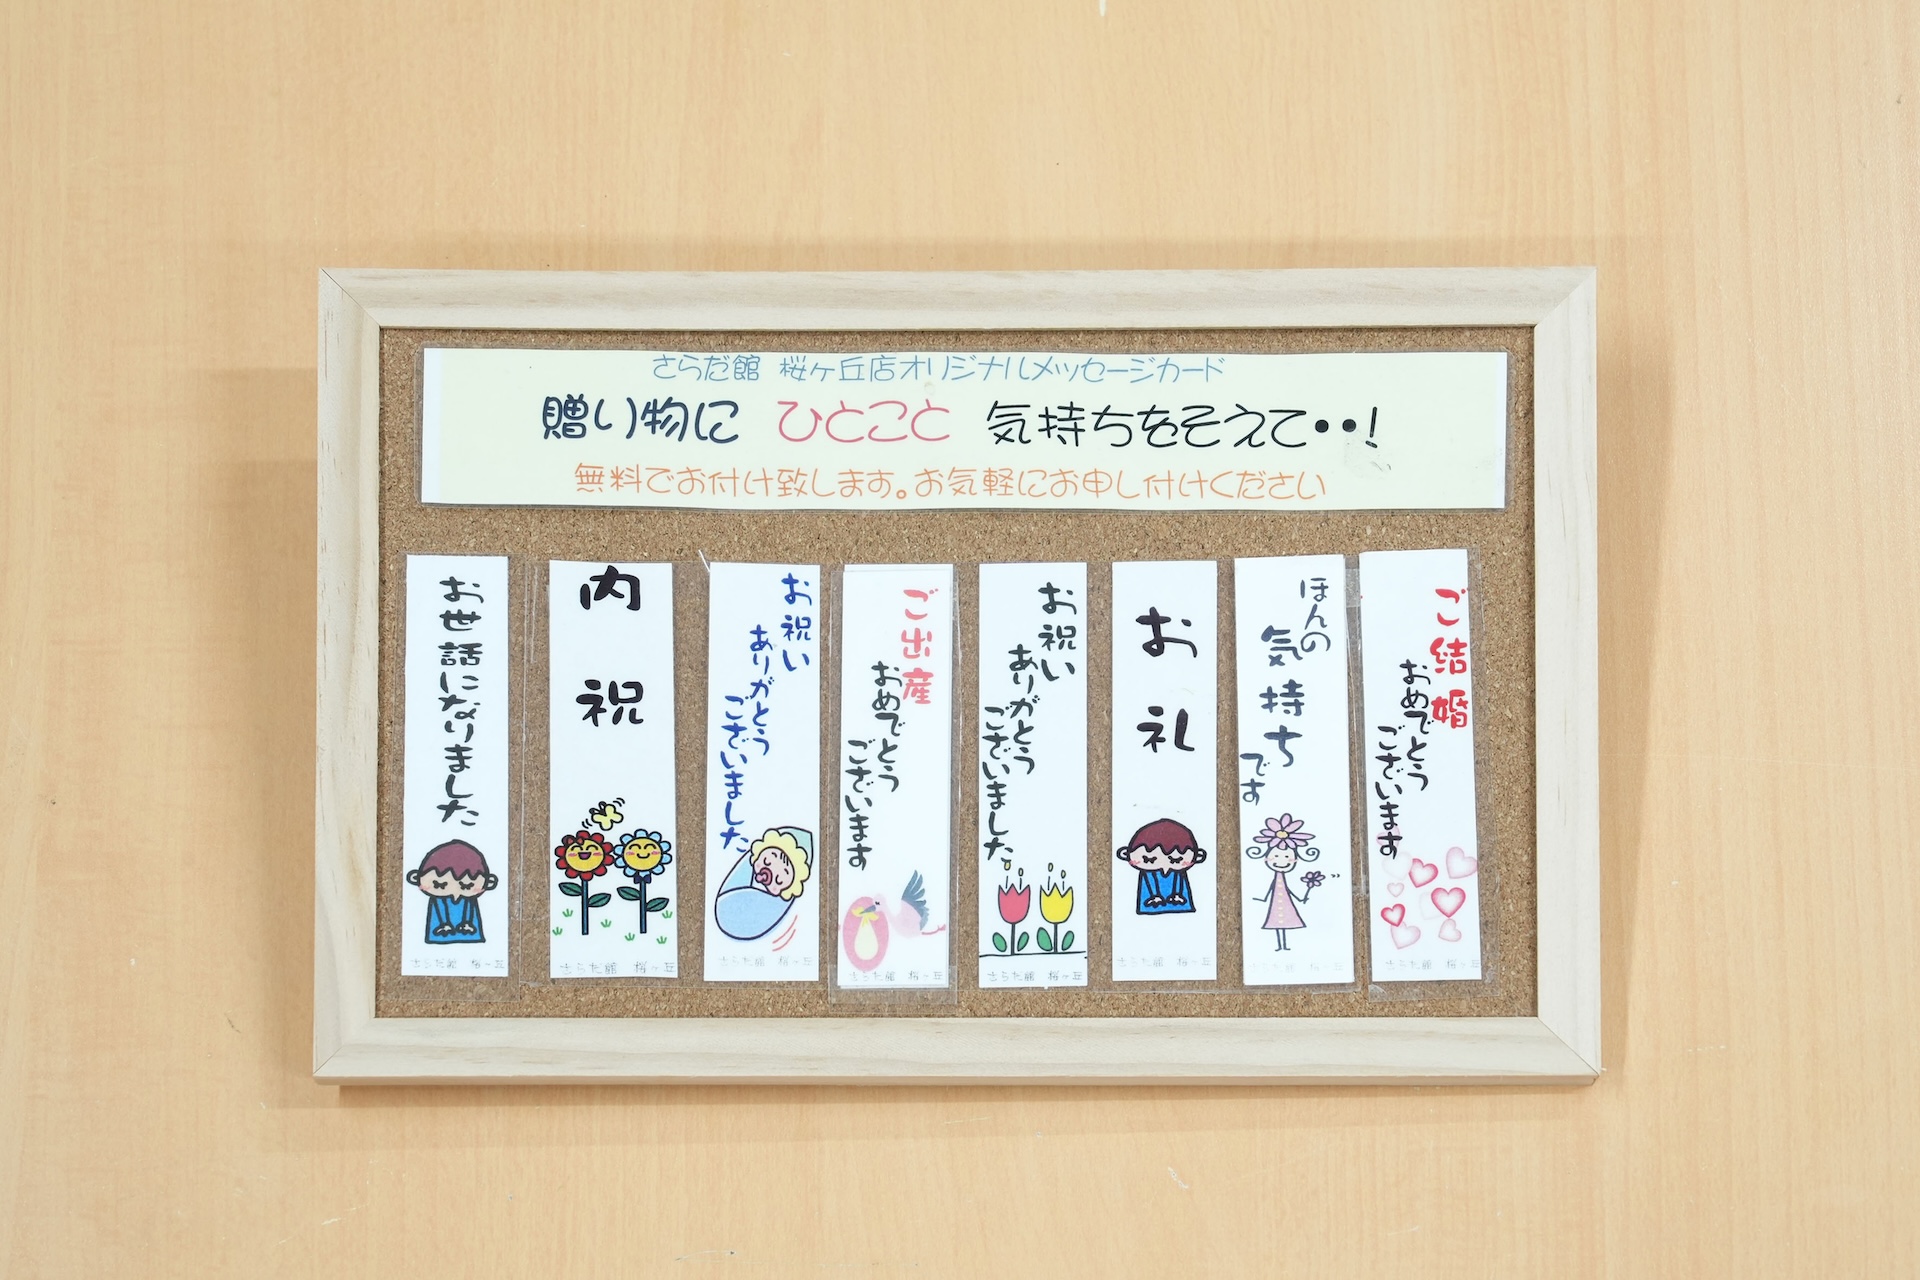 さらだ館 桜ヶ丘店オリジナルメッセージカード
贈り物に ひとこと 気持ちをそえて・・!
無料でお付け致します。お気軽にお申し付けください
お世話になりました
さらだ館 桜ヶ丘
内祝
さらだ館 桜ヶ丘
お祝い
ありがとう
ございました
さらだ館 桜ヶ丘
ご出産
おめでとう
ございます
さらだ館 桜ヶ丘
お祝い
ありがとう
ございました
さらだ館 桜ヶ丘
お礼
さらだ館 桜ヶ丘
ほんの
気持ち
です
さらだ館 桜ヶ丘
ご結婚
おめでとう
ございます
さらだ館 桜ヶ丘